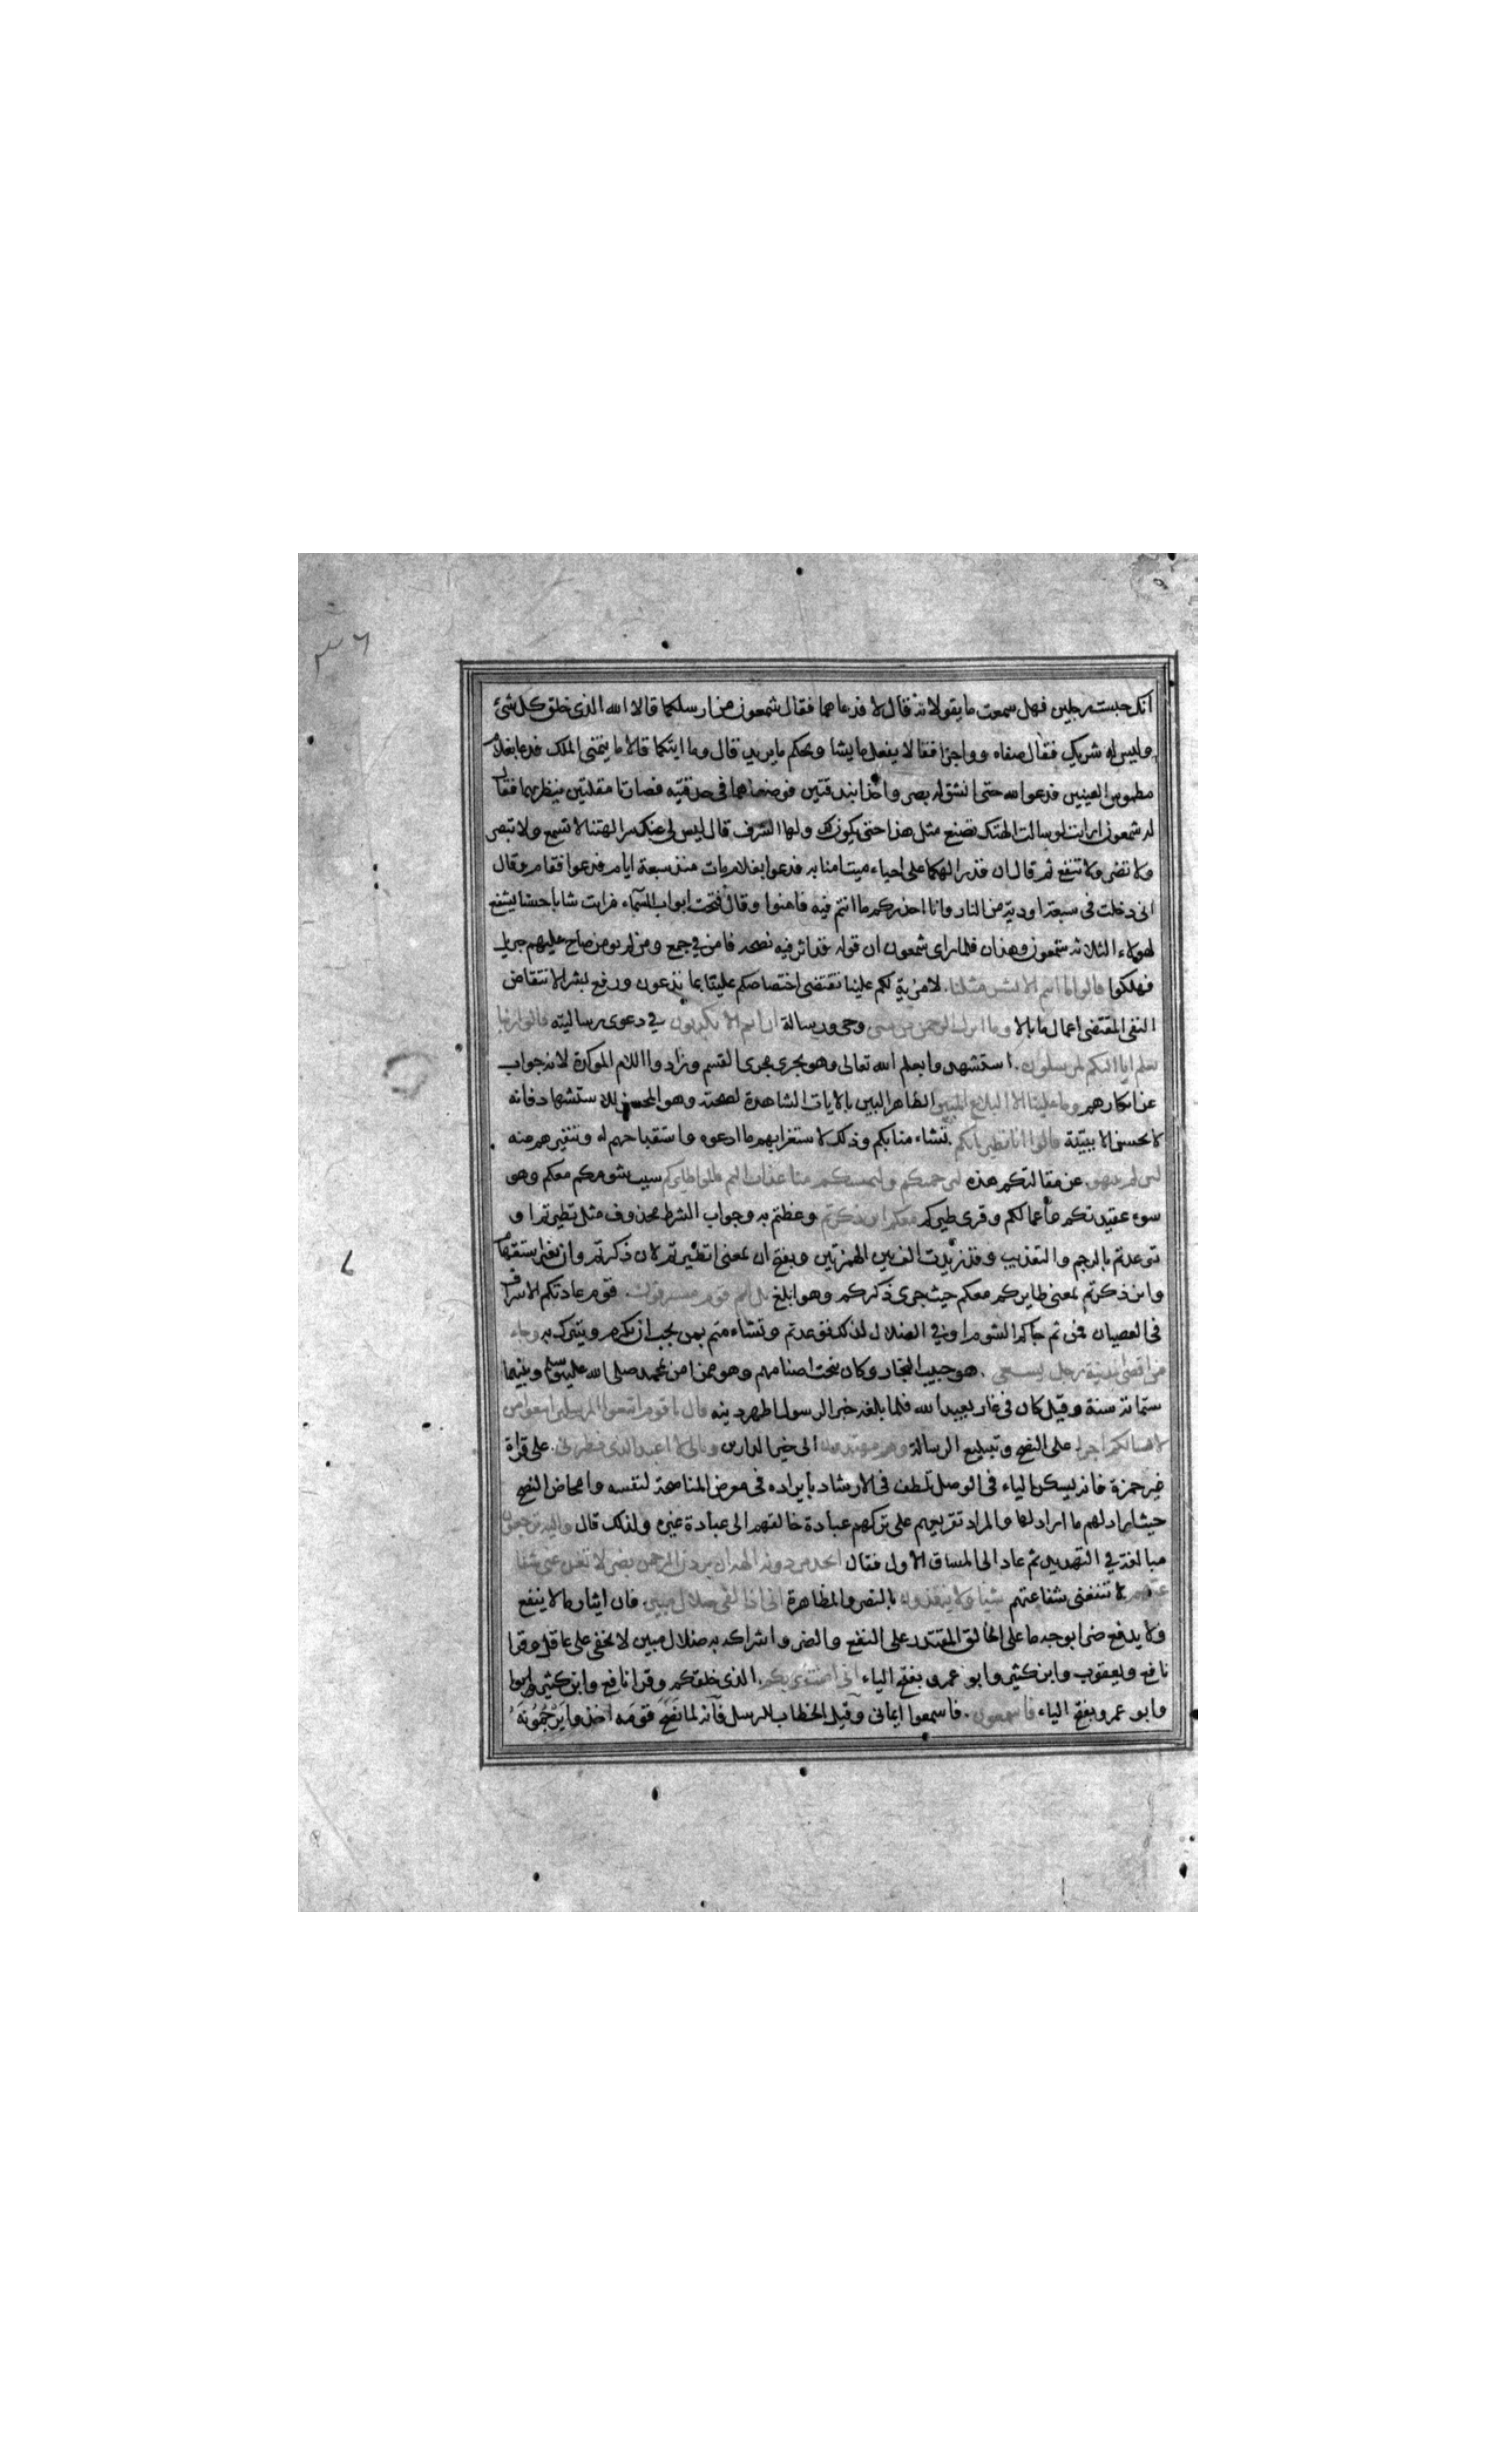 ٣٦
انك حبست رجلين فهل سمعت ما يقولانه قال لا فدعاهما فقال شمعون من ارسلكما قالا الله الذى خلق كل شئ
وليس له شريك فقال صفاه وواجزا فقالا يفعل ما يشا ويحكم ما يريد قال وما ايتكما قالا ما يتمنى الملك فدعا بغلام
مطموس العينين فدعوا الله حتى انشق له بصر واخذا بندقتين فوضعاهما فى حدقتيه فصارتا مقلتين ينظر بهما فقال
له شمعون ارايت لو سالت الهتك تصنع مثل هذا حتى يكون لك ولها الشرف قال ليس لى عنك سر الهتنا لا تسمع ولا تبصر
ولا تضر ولا تنفع ثم قال ان قدر الهكما على احياء ميت امنا به فدعوا بغلام مات منذ سبعة ايام فدعوا فقام وقال
انى دخلت فى سبعة اودية من النار وانا احذركم ما انتم فيه فامنوا وقال فتحت ابواب السماء فرايت شابا حسنا يشفع
لهولاء الثلاثه شمعون وهذان فلما راى شمعون ان قوله قد اثر فيه نصحه فامن في جمع ومن لم يومن صاح عليهم جبريل
فهلكوا قالوا ما انتم الا بشر مثلنا. لا مزية لكم علينا تقتضى اختصاصكم علينا بما تدعون ورفع لبشر لانتقاض
النفى المقتضى اعمال ما بالا وما انزل الرحمن من شى وحى ورسالة ان انتم الا تكذبون في دعوى رسالته قالوا ربنا
يعلم انا اليكم لمرسلون. استشهدوا بعلم الله تعالى وهو يجرى مجرى القسم وزادوا اللام الموكدة لانه جواب
عن انكارهم وما علينا الا البلاغ المبين الظاهر البين بالايات الشاهدة لصحته وهو المحسن للاستشهاد فانه
لا يحسن الا ببيّنة قالوا انا تطيرنا بكم. تشاء منا بكم وذلك لاستغرابهم ما ادعوه واستقباحهم له وتنفيرهم منه
لئن لم تنتهوا. عن مقالتكم هذه لنرجمنكم وليمسنكم منا عذاب اليم قالوا طايركم سبب شومكم معكم وهو
سوء عقيدتكم واعمالكم وقرى طيركم معكم اين ذكرتم وعظتم به وجواب الشرط محذوف مثل تطيرتم او
توعدتم بالرجم والتعذيب وقد زيدت الف بين الهمزتين وبفتح ان بمعنى اتطيرتم لان ذكرتم وان بغير استفهام
واين ذكرتم بمعنى طايركم معكم حيث جرى ذكركم وهو ابلغ بل انتم قوم مسرفون. قوم عادتكم الاسراف
فى العصيان فمن ثم جاءكم الشوم او في الضلال لذلك توعدتم وتشاء متم بمن يجب ان يكرم ويتبرك به وجاء
من اقصى المدينة رجل يسعى. هو حبيب النجار وكان ينحت اصنامهم وهو ممن امن بمحمد صلى الله عليه وسلم وبينهما
ستمائة سنة وقيل كان فى غار يعبد الله فلما بلغه خبر الرسول اظهر دينه قال يا قوم اتبعوا المرسلين اتبعوا من
لا يسالكم اجرا على النصح وتبليغ الرسالة وهم مهتدون الى خير الدارين ومالى لا اعبد الذى فطرنى. على قراة
غير حمزة فانه يسكن الياء فى الوصل تلطف فى الارشاد بايراده فى معرض المناصحة لنفسه وامحاض النصح
حيث اراد لهم ما اراد لها والمراد تقريعهم على تركهم عبادة خالقهم الى عبادة غيره ولذلك قال واليه ترجعون
مبالغة في التهديد ثم عاد الى المساق الاول فقال اتخذ من دونه الهة ان يردن الرحمن بضر لا تغن عنى شفا
عتهم لا تنفعنى شفاعتهم شيا ولا ينقذون بالنصر والمظاهرة انى اذا لفى ضلال مبين. فان ايثار ما لا ينفع
ولا يدفع ضرا بوجه ما على الخالق المقتدر على النفع والضر واشراكه به ضلال مبين لا يخفى على عاقل وقرا
نافع ويعقوب وابن كثير وابو عمرو بفتح الياء انى امنت بربكم. الذى خلقكم وقرا نافع وابن كثير
وابو عمرو بفتح الياء فاسمعون. فاسمعوا ايمانى وقيل الخطاب للرسل فانه لما نصح قومه اخذوا يرجمونه